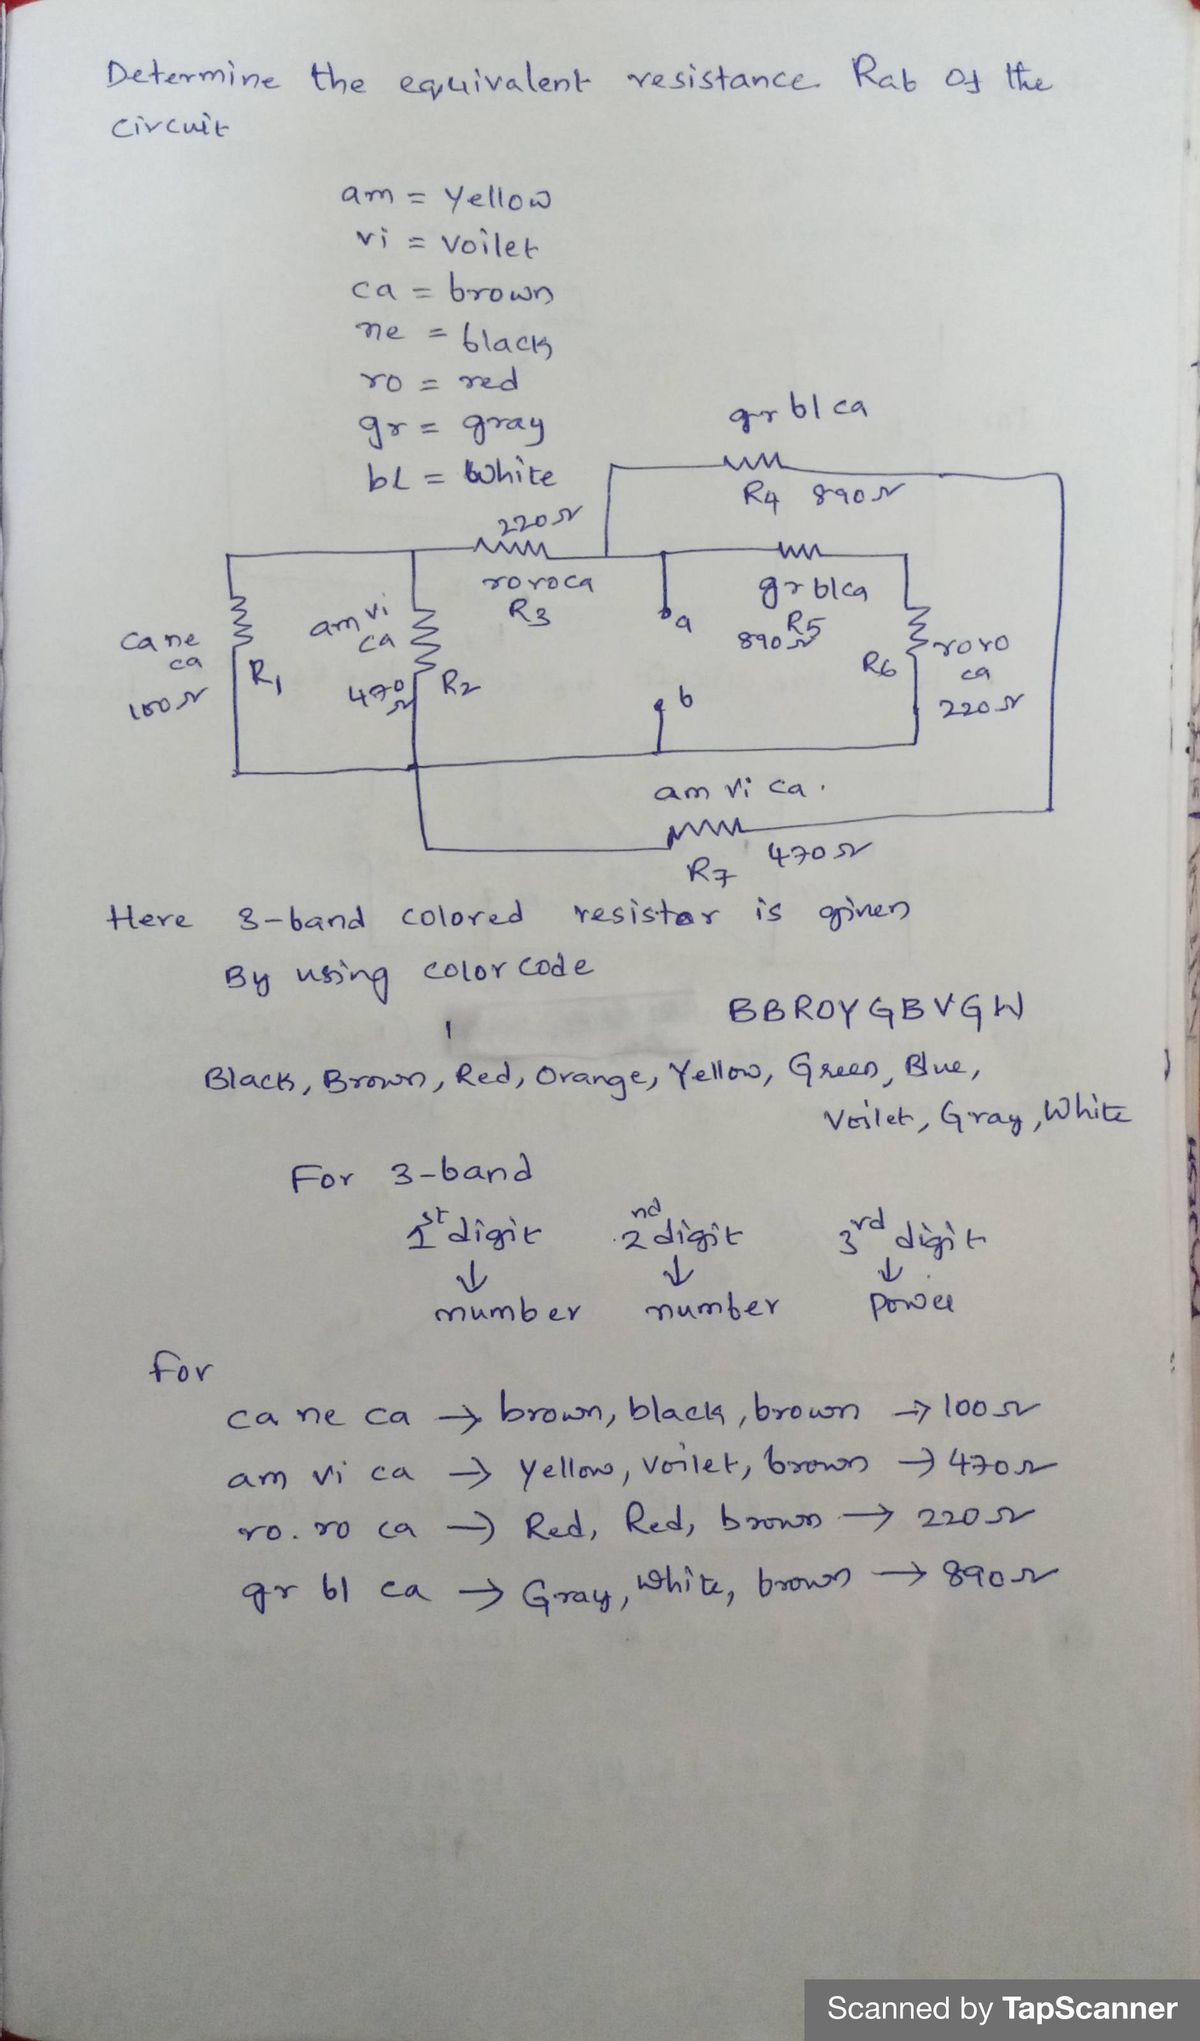 Determine the equivalent resistance Rab of the
circuit
am = Yellow
vi = Voilet
ca = brown
ne = black
ro = red
gr = gray
bl = White
gr bl ca
R4 890 Ω
220 Ω
ro ro ca
R3
gr bl ca
R5
890 Ω
a
am vi
ca
470
Ω
R2
ca ne
ca
100 Ω
R1
R6
ro ro
ca
220 Ω
b
am vi ca.
470 Ω
R7
Here 3-band colored resistor is given
By using color code
BBROYGBVGW
Black, Brown, Red, Orange, Yellow, Green, Blue,
Voilet, Gray, White
For 3-band
1st digit 2nd digit 3rd digit
↓ ↓ ↓
number number Power
For
ca ne ca → brown, black, brown → 100 Ω
am vi ca → Yellow, Voilet, brown → 470 Ω
ro. ro ca → Red, Red, brown → 220 Ω
gr bl ca → Gray, White, brown → 890 Ω
Scanned by TapScanner